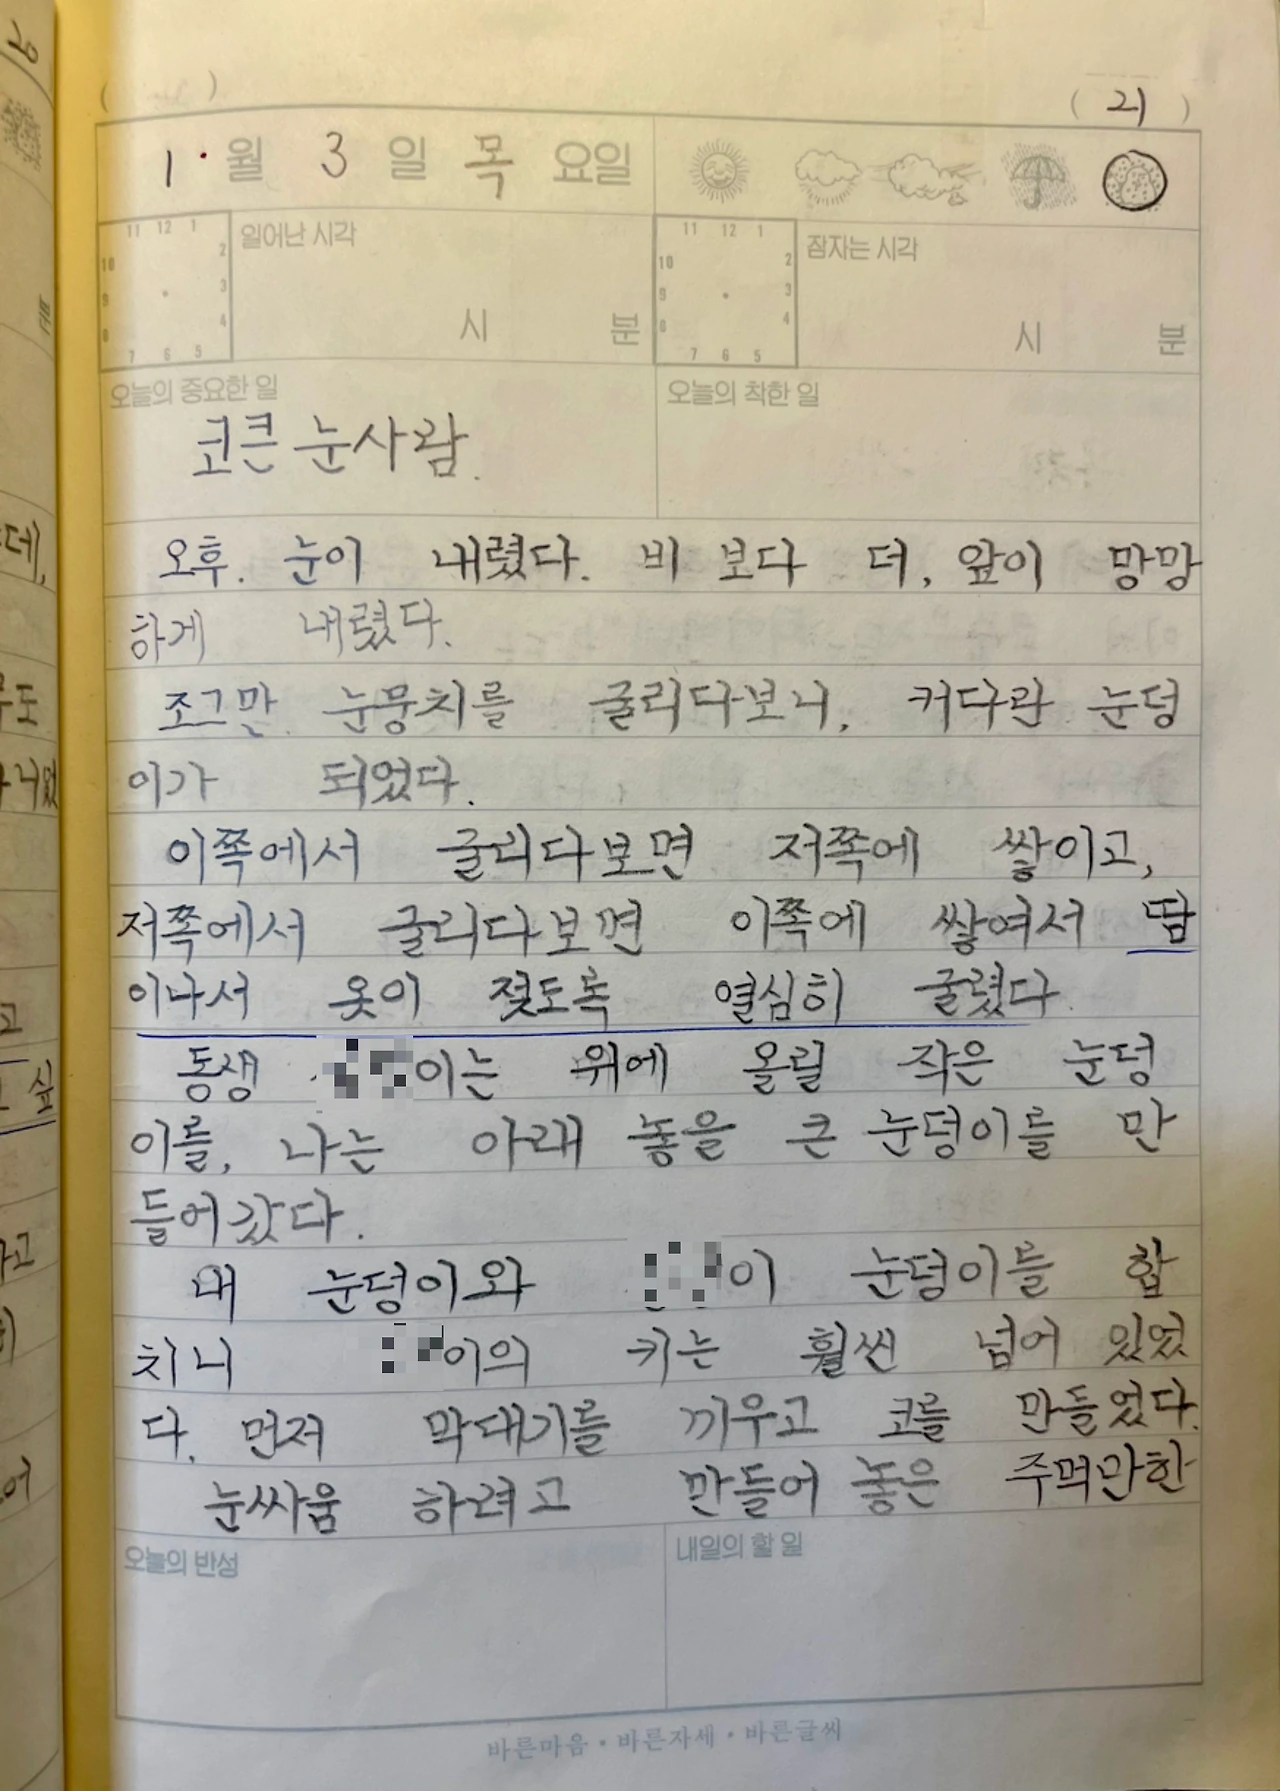 20
( )
( 21 )
1 월 3 일 목 요일
11 12 1
2
10
3
9
4
8
7 6 5
일어난 시각
시 분
11 12 1
2
10
3
9
4
8
7 6 5
잠자는 시각
시 분
오늘의 중요한 일
오늘의 착한 일
코큰 눈사람.
오후. 눈이 내렸다. 비 보다 더, 앞이 망망
하게 내렸다.
조그만 눈뭉치를 굴리다보니, 커다란 눈덩
이가 되었다.
이쪽에서 굴리다보면 저쪽에 쌓이고,
저쪽에서 굴리다보면 이쪽에 쌓여서 땀
이나서 옷이 젖도록 열심히 굴렸다
동생 이는 위에 올릴 작은 눈덩
이를, 나는 아래 놓을 큰 눈덩이를 만
들어갔다.
내 눈덩이와 이 눈덩이를 합
치니 이의 키는 훨씬 넘어 있었
다. 먼저 막대기를 끼우고 코를 만들었다.
눈싸움 하려고 만들어 놓은 주먹만한
오늘의 반성
내일의 할 일
바른마음 • 바른자세 • 바른글씨